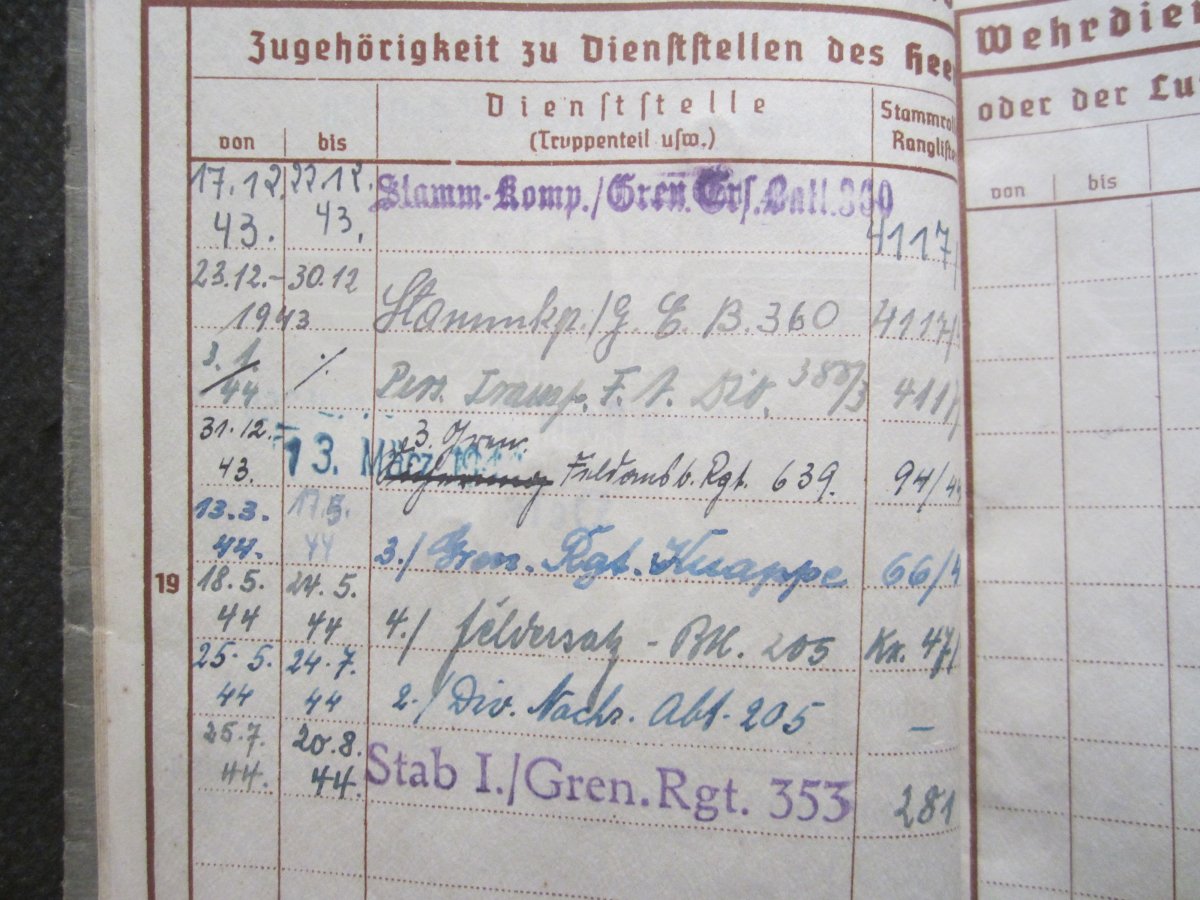 Zugehörigkeit zu Dienststellen des Hee
Dienststelle
(Truppenteil usw.)
von bis
Stammrol
Rangliste
17.12. 22.12. Stamm-Komp./Gren. Ers. Batl. 360
43. 43. 4117/
23.12.- 30.12
1943 Stammkp./G. E. B. 360 4117/
3.1. ./.
44 Pers. Transp. F. A. Div. 4117/
31.12. 13. März 3. Gren.
43. Feldausb. Rgt. 639. 94/44
13.3. 17.5.
44. 44 3./ Gren. Rgt. Knappe 66/4
19
18.5. 24.5.
44 44 4./ Feldersatz - Btl. 205 Kr. 47/
25.5. 24.7.
44 44 2./ Div. Nachr. Abt. 205 –
25.7. 20.8.
44. 44. Stab I./Gren. Rgt. 353 281
Wehrdien
oder der Lu
von bis